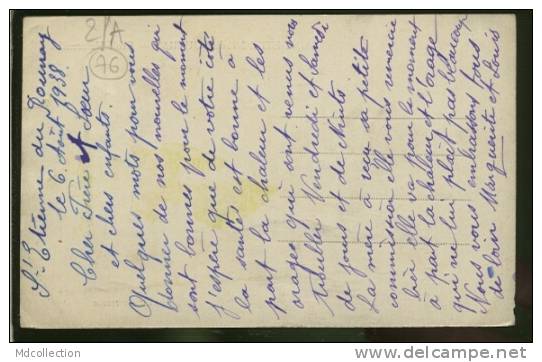 St Etienne du Rouvray
le 6 Août 1938.
Cher Frère et Soeur
et chers enfants.
Quelques mots pour vous
donner de nos nouvelles qui
sont bonnes pour le moment
j'espère que de votre côté
la santée est bonne à
part la chaleur et les
orages qui sont venus nous
Vendredi et Samedi
de jours et de Nuits
La mère à reçu sa petite
commission elle vous remercie
bien elle va pour le moment
à part la chaleur et l'orage
qui ne lui plaît pas beaucoup
Nous vous embrassons tous
de loin Marguerite et Louis
2/A
A6
MDcollection
www.delcampe.net